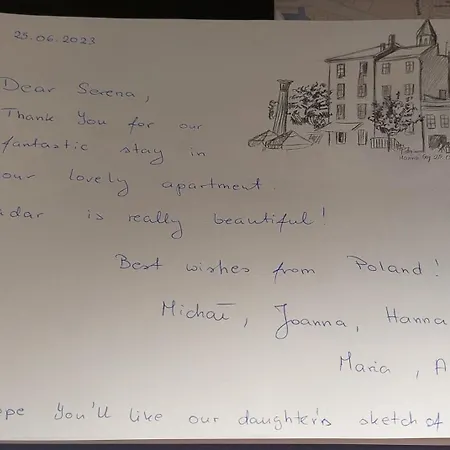 25.06.2023
Dear Serena,
Thank You for our
fantastic stay in
our lovely apartment.
adar is really beautiful!
Best wishes from Poland!
Michał, Joanna, Hanna
Maria, A
ope You'll like our daughter's sketch of